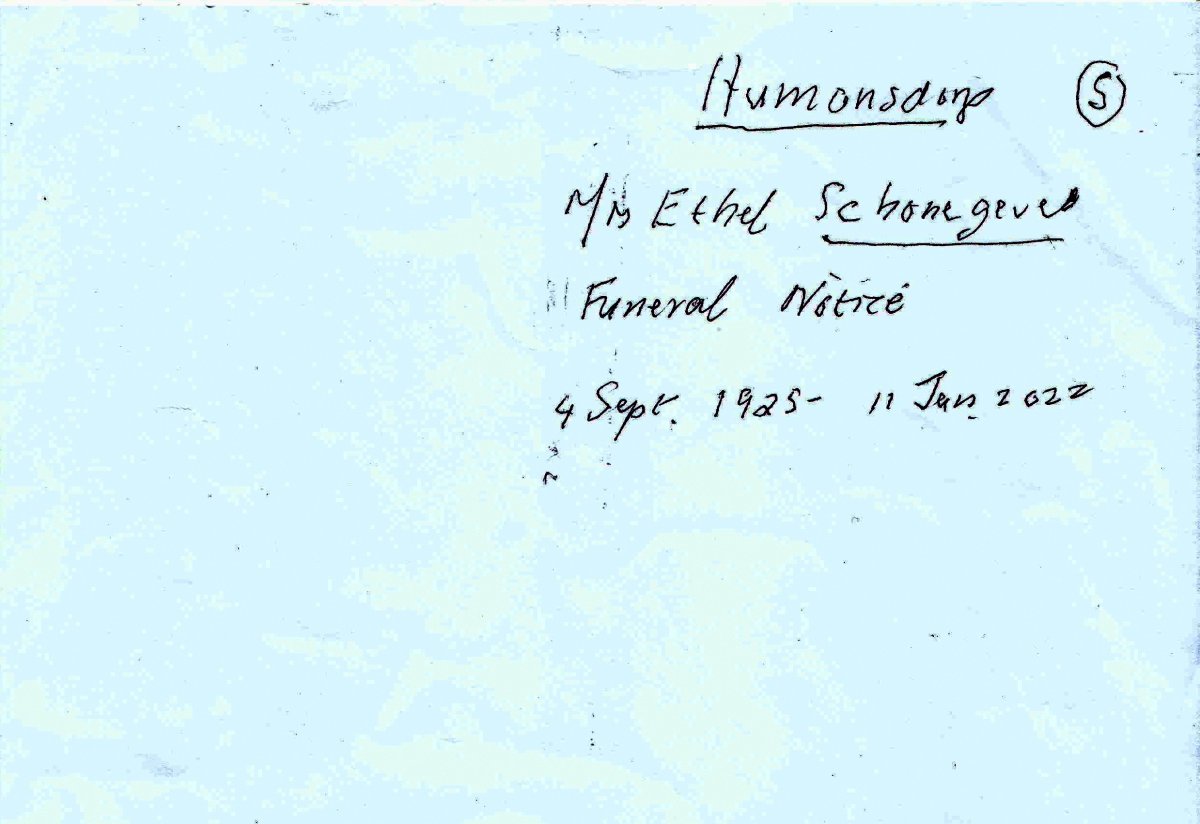 Humansdorp Ⓢ
Mrs Ethel Schonegevel
Funeral Notice
4 Sept. 1925- 11 Jan. 2022